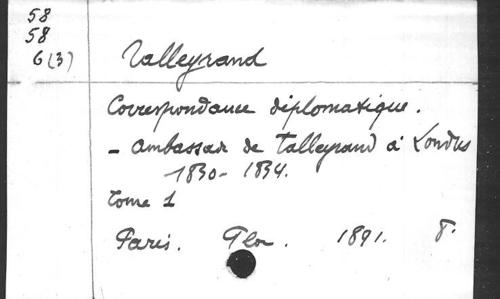 58
58
6(3)
Talleyrand
Correspondance diplomatique.
- ambassade de Talleyrand à Londres
1830-1834.
Tome 1
Paris. Plon. 1891. 8°.